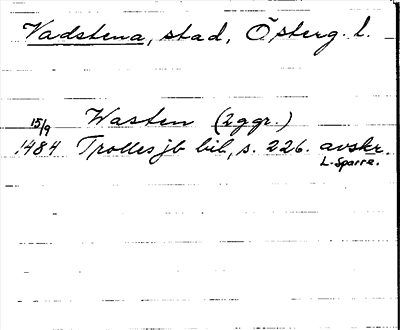 Vadstena, stad, Österg. l.
15/9 Wasten (2 ggr.)
1484 Trolles jb bil, s. 226. avskr.
L. Sparre.